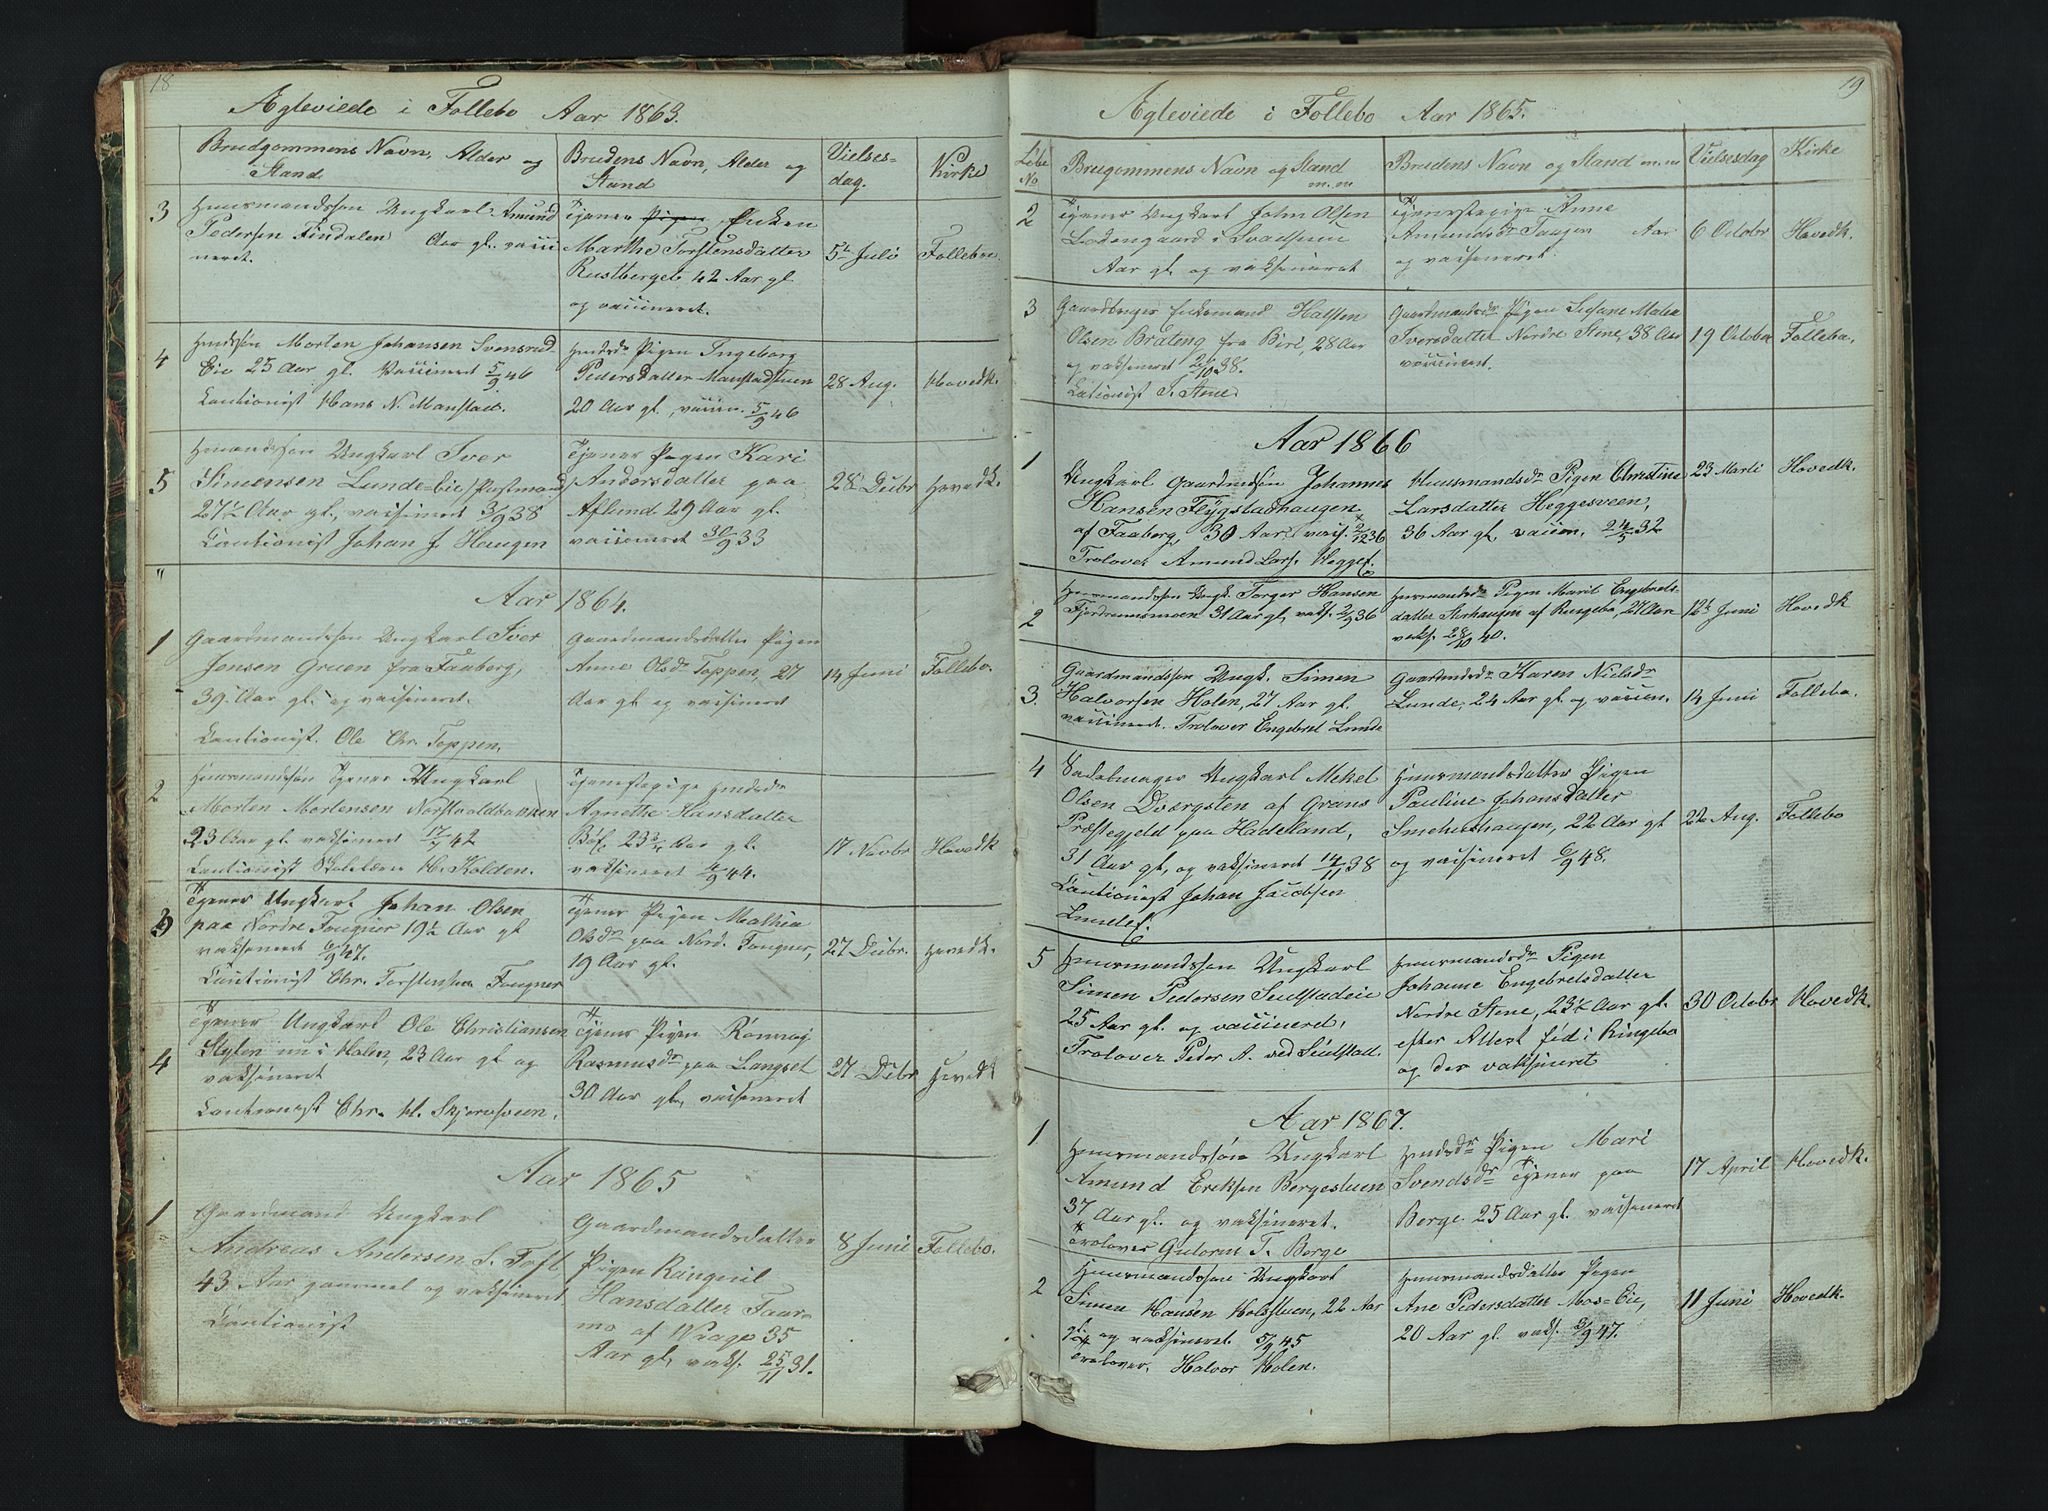 18
Ægteviede i Follebo Aar 1863.
Brudgommens Navn, Alder og Stand
Brudens Navn, Alder og Stand
Vielses-dag.
Kirke
3
Huusmandssøn Ungkarl Amund
Pedersen Findalen Aar gl. vacci
neret.
Tjener Enken
Marthe Torstensdatter
Rustberget 42 Aar gl
og vaccineret.
5t Juli
Follebo
4
Hmdssøn Morten Johansen Svensrud
Eie 25 Aar gl. Vaccineret 5/9 46
Cautionist Hans N. Manstad.
Hmdsdr Pigen Ingeborg
Pedersdatter Manstadtuen
20 Aar gl, vaccin. 5/9 46
28 Aug.
Hovedk.
5
Hmandssøn Ungkarl Iver
Simensen Lunde-Eie (Postmand)
27½ Aar gl, vaccineret 3/9 38
Cautionist Johan J. Haugen
Tjener Pigen Kari
Andersdatter paa
Aflund 29 Aar gl.
vaccineret 30/9 33
28 Decbr
Hovedk.
"
Aar 1864.
1
Gaardmandssøn Ungkarl Iver
Jensen Gruen fra Faaberg,
39 Aar gl. og vaccineret.
Cautionist. Ole Chr. Toppen.
Gaardmandsdatter Pigen
Anne Olsdr Toppen, 27
Aar gl og vaccineret
14 Juni
Follebo.
2
Huusmandssøn Tjener Ungkarl
Morten Mortensen Norstvoldbakken
23 Aar gl. vaksineret 17/7 42
Cautionist Skolelærer H. Kolden.
Tjenestepige Hmdsdr
Agnethe Hansdatter
Bø, 23 Aar gl.
vaksineret 4/9 44.
17 Novbr
Hovedk
3
Tjener Ungkarl Johan Olsen
paa Nordre Fougner 19½ Aar gl
vaksineret 6/9 47.
Cautionist Chr. Torstensen Fougner
Tjener Pigen Mathia
Olsdr paa Nord. Fougner,
19 Aar gl.
27 Decbr.
Hovedk.
4
Tjener Ungkarl Ole Christiansen
Slyten nu i Holen, 23 Aar gl og
vaksineret
Cautionist Chr. H. Skjeraasveen.
Tjener Pigen Rønnog
Rasmusdr paa Langset
30 Aar gl, vaccineret
27 Decbr
Hovedk
Aar 1865
1
Gaardmand Ungkarl
Andreas Andersen S. Toft
43 Aar gammel og vaksineret
Cautionist
Gaardmandsdatter
Pigen Ringnil
Hansdatter Faar-
mo af Waage 35
Aar gl, vaks. 25/11 31.
8 Juni
Follebo.
19
Ægteviede i Follebo Aar 1865.
Løbe No
Brugommens Navn og Stand m.m
Brudens Navn og Stand m.m
Vielsesdag
Kirke
2
Tjener Ungkarl John Olsen
Ladengaard i Svadsum
Aar gl og vaksineret
Tjenestepige Anne
Amundsdr Taajen Aar
og vaccineret.
6 Octobr
Hovedk.
3
Gaardbruger Enkemand Halsten
Olsen Brateng fra Biri, 28 Aar
og vaksineret 26/10 38.
Cationist S. Stene
Gaardmandsdr Pigen Sefane Malea
Iversdatter Nordre Stene, 38 Aar
vaccineret.
19 October
Follebo.
Aar 1866
1
Ungkarl Gaardmdsøn Johannes
Hansen Flygstadhaugen
af Faaberg, 30 Aar, vacs. 2/12 36
Trolover Amund Lars. Hegges.
Huusmandsdr Pigen Christine
Larsdatter Heggesveen,
36 Aar gl, vaccin, 24/5 32
23 Marti
Hovedk.
2
Huusmandssøn Ungk. Torger Hansen
Fjerdrumsmoen 31 Aar gl, vaks. 2/9 36
Huusmandsdr Pigen Marit Engebrets-
datter af Ringebo, 27 Aar
vaks. 28/10 40.
12t Juni
Hovedk
3.
Gaardmandssøn Ungk. Simen
Halvorsen Holen, 27 Aar gl.
vaccineret. Trolover Engebret Lunde
Gaardmdsdr Karen Nielsdr
Lunde, 24 Aar gl. og vaccin.
14 Juni
Follebo.
4
Sadelmager Ungkarl Mekel
Olsen Dvergsten af Grans
Præstegjeld paa Hadeland,
31 Aar gl, og vaksineret 14/11 38
Cautionist Johan Jacobsen
Lundee
Huusmandsdatter Pigen
Pauline Johansdatter
Smehushaugen, 22 Aar gl
og vaccineret 6/9 48.
22 Aug.
Follebo
5
Huusmandssøn Ungkarl
Simen Pedersen Seielstadeie
25 Aar gl. og vaccineret,
Trolover Peder A. ved Seielstad.
Huusmandsdr Pigen
Johanne Engebretsdatter
Nordre Stene, 23½ Aar gl.
efter Attest fød i Ringebo
og der vaksineret
30 Octobr
Hovedk.
Aar 1867.
1
Huusmandssøn Ungkarl
Amund Eriksen Bergestuen
37 Aar gl. og vaksineret.
Trolover Gutorm T. Berge
Hmdsdr Pigen Mari
Svendsdr Tjener paa
Berge 25 Aar gl. vaccineret
17 April
Hovedk.
2
Huusmandssøn Ungkarl
Simen Hansen Holsstuen, 22 Aar
gl. og vaksineret 5/9 45
Trolover, Halvor Holen.
Huusmandsdatter Pigen
Ane Pedersdatter Mos-Eie,
20 Aar gl. vaks. 3/9 47.
11 Juni
Hovedk.